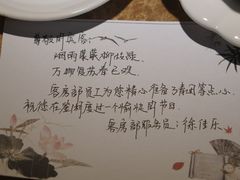 尊敬的宾客:
烟雨蒙蒙柳丝恋
万物复苏春已欢
客房部员工为您精心准备了青团等点心,
祝您在釜州度过一个愉快的节日。
客房部服务员:徐佳乐